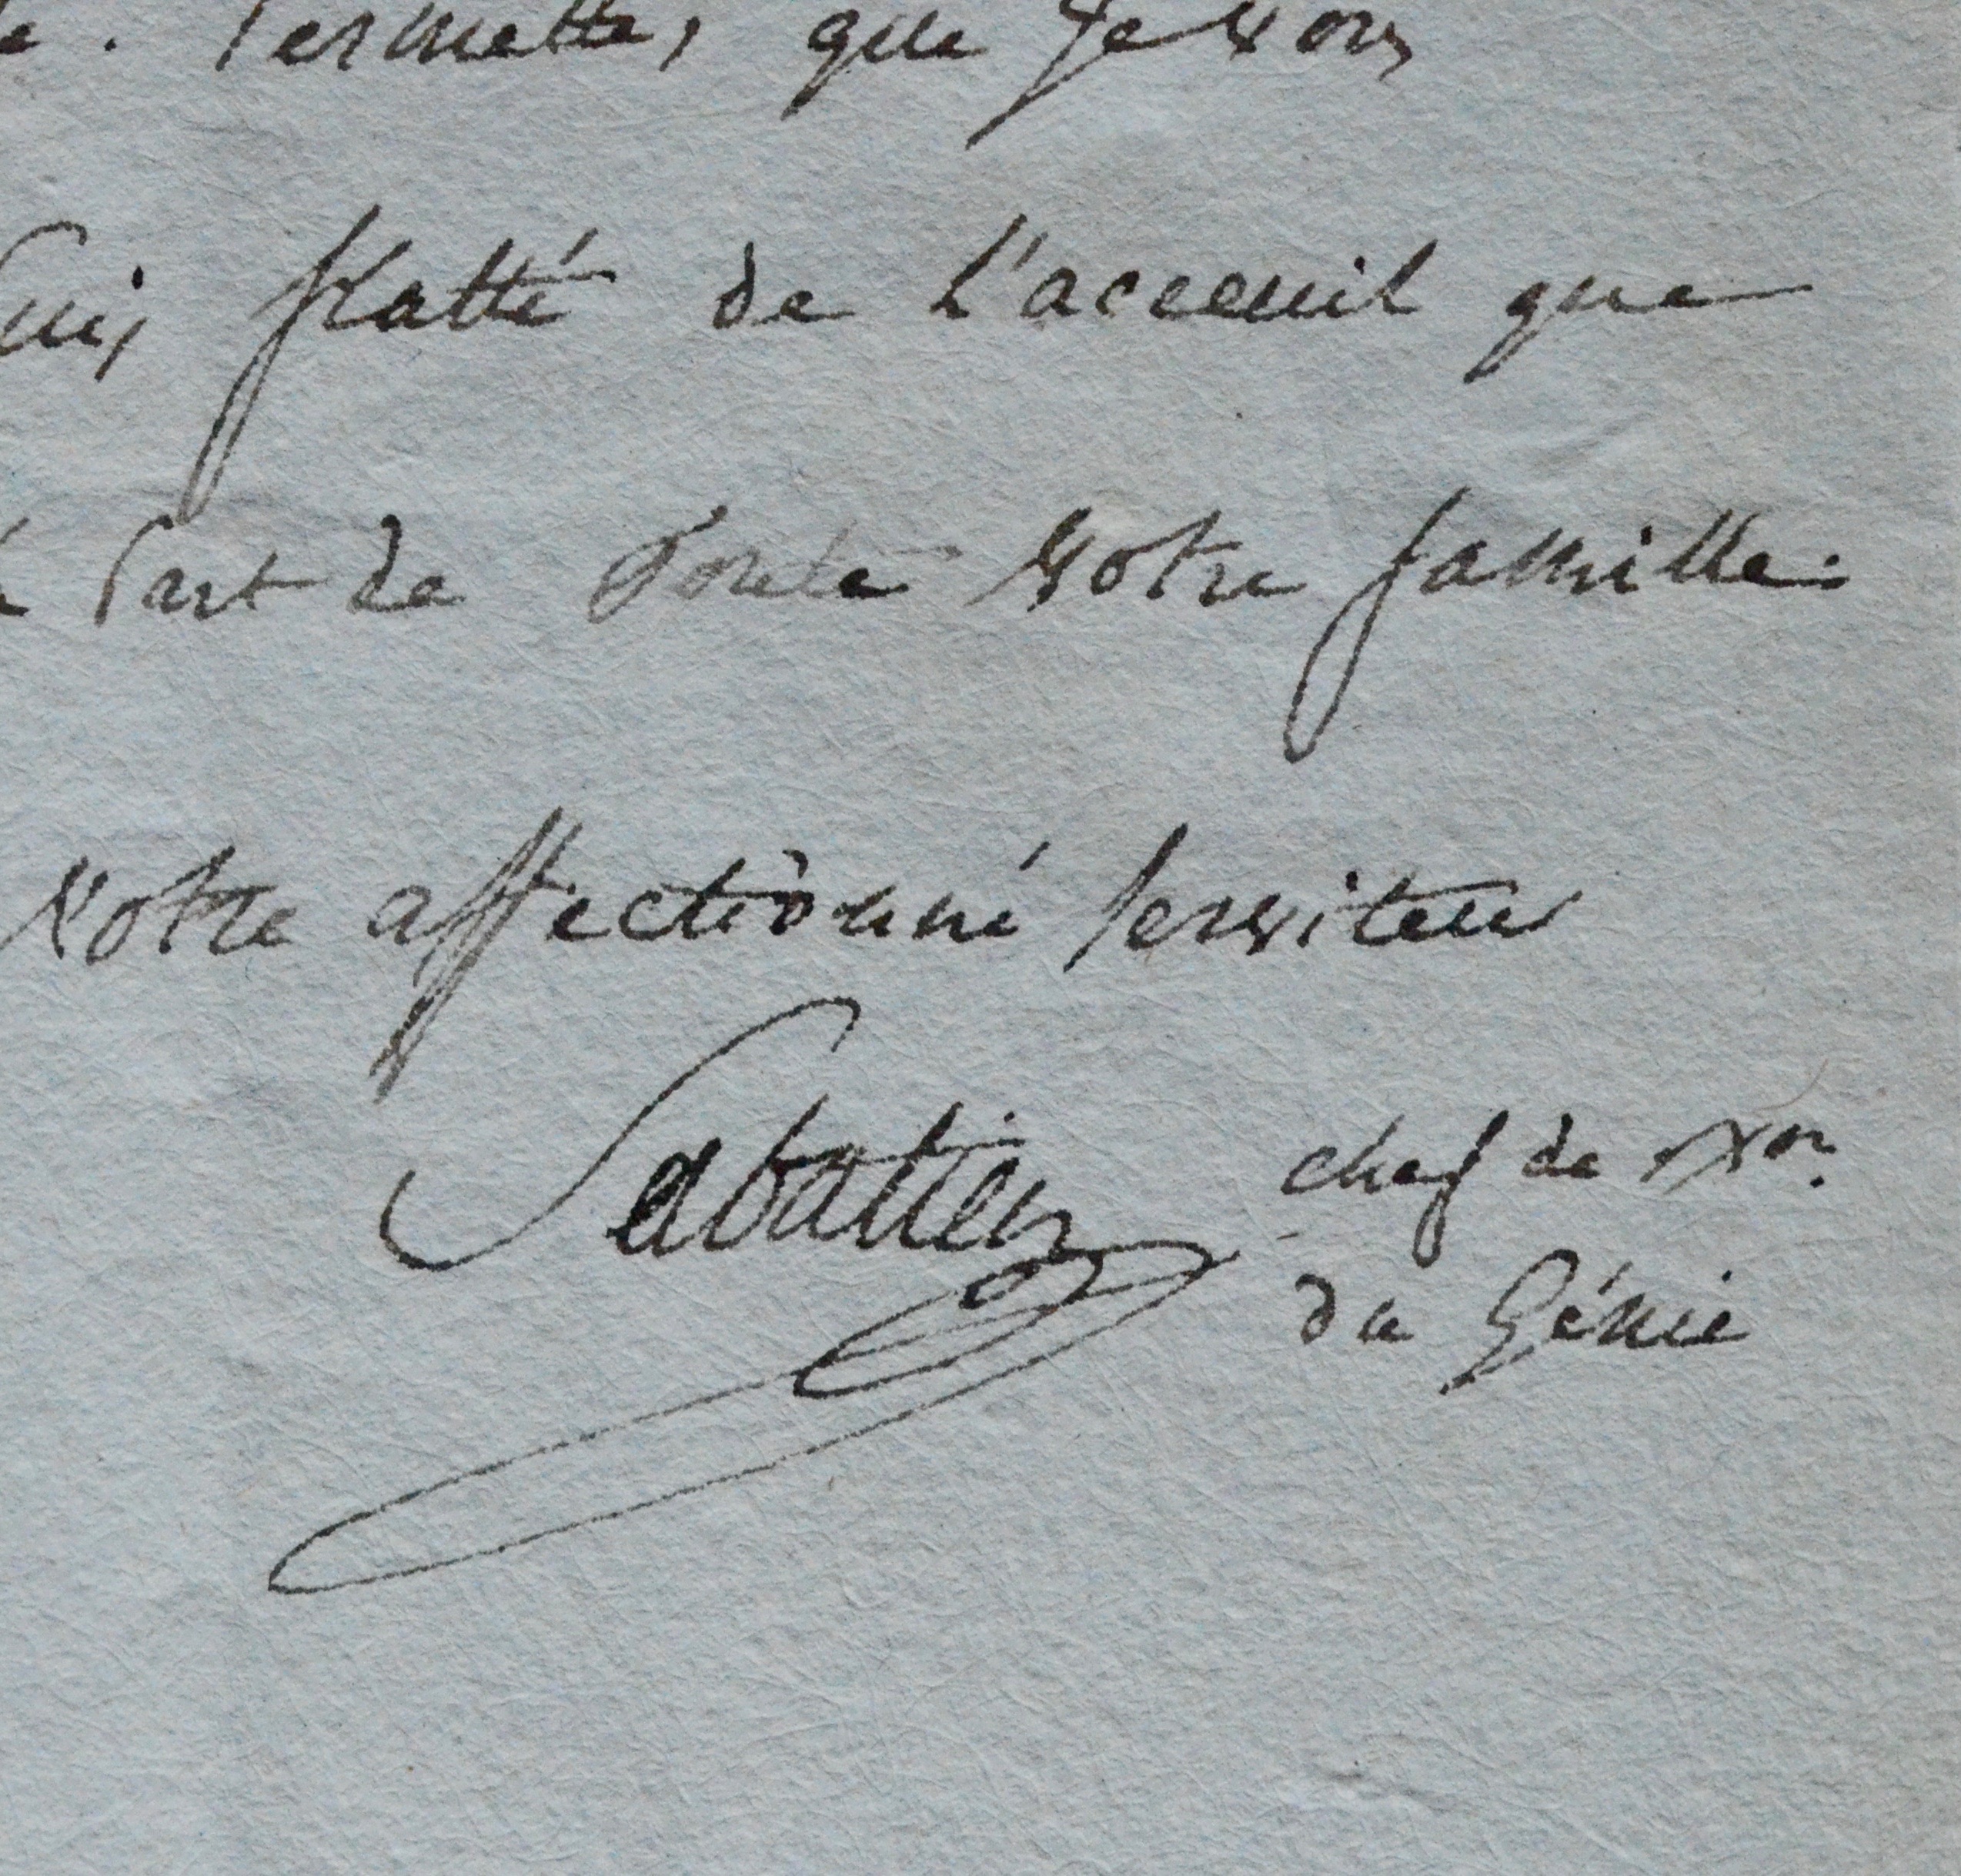 . Permettez que je vous
suis flatté de l'acceuil que
Part de Toute Votre famille.
Votre affectionné serviteur
Sabatier chef de Bon.
du Génie